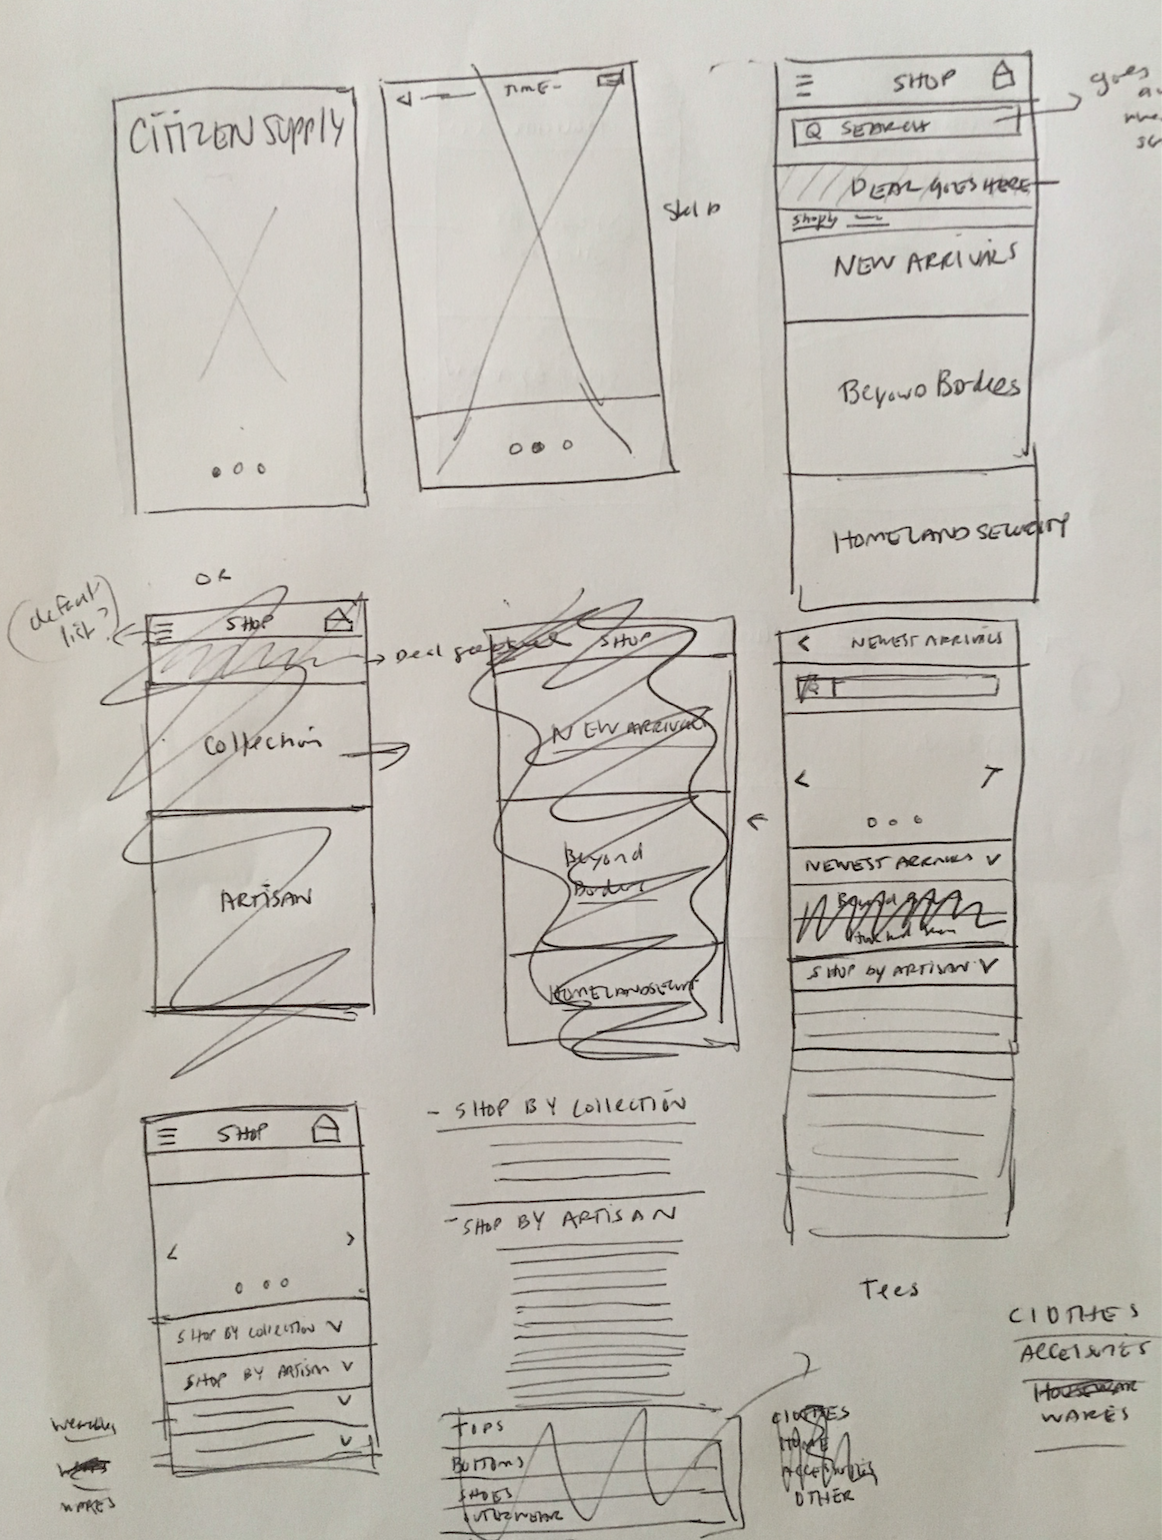 CITIZEN SUPPLY
TIME
SKIP
SHOP
SEARCH
goes
DEAL GOES HERE
NEW ARRIVALS
BEYOND BORDERS
HOMELAND SECURITY
OR
default
list?
SHOP
Collection
ARTISAN
SHOP
NEW ARRIVALS
Beyond
Border
HOMELAND SECURITY
NEWEST ARRIVALS
NEWEST ARRIVALS
SHOP BY ARTISAN
SHOP
SHOP BY COLLECTION
SHOP BY ARTISAN
Wearables
WARES
- SHOP BY COLLECTION
- SHOP BY ARTISAN
TOPS
BOTTOMS
SHOES
OUTERWEAR
Tees
CLOTHES
HOME
ACCESSORIES
OTHER
CLOTHES
ACCESSORIES
WARES